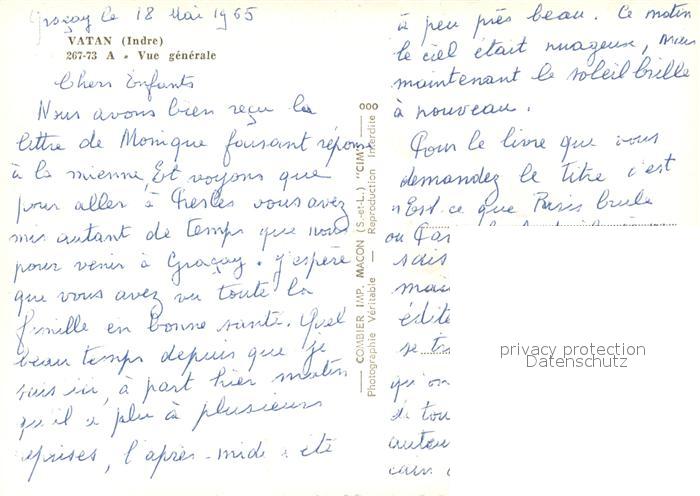 Graçay le 18 Mai 1965
VATAN (Indre)
267-73 A - Vue générale
Chers Enfants
Nous avons bien reçu la
lettre de Monique faisant réponse
à la mienne, Et voyons que
pour aller à Chesles vous avez
mis autant de temps que nous
pour venir à Graçay. J'espère
que vous avez vu toute la
famille en bonne santé. Quel
beau temps depuis que je
suis ici, à part hier matin
qu'il a plu à plusieurs
reprises, l'après-midi a été
COMBIER IMP. MACON (S.-et-L.) "CIM"
Photographie Véritable - Reproduction Interdite
à peu près beau. Ce matin
le ciel était nuageux, Mais
maintenant le soleil brille
à nouveau.
Pour le livre que vous
demandez le titre c'est
"Est-ce que Paris brule
ou
sais
édite
se
qu'on
de tou
auteu
privacy protection
Datenschutz